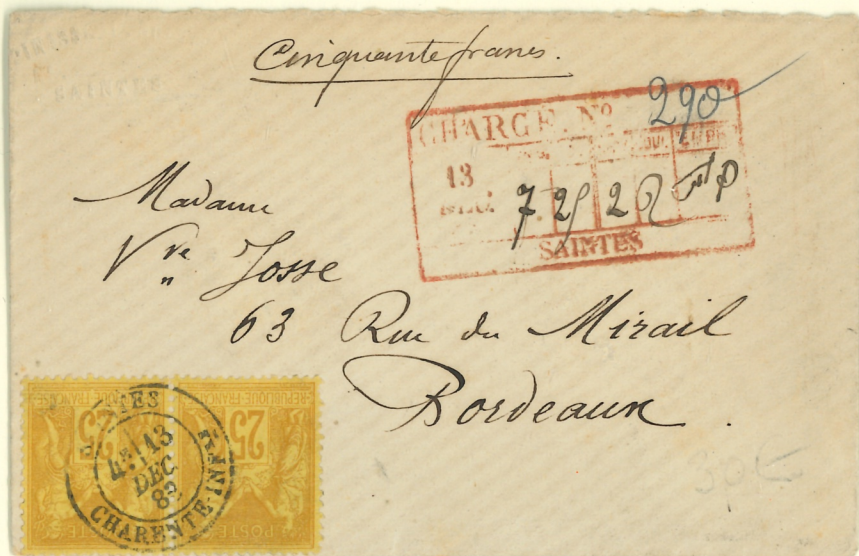 Cinquante francs.
CHARGE. Nº 290
13
7 25 2
SAINTES
Madame
Vve Josse
63 Rue du Mirail
Bordeaux.
25 25
RÉPUBLIQUE FRANÇAISE RÉPUBLIQUE FRANÇAISE
POSTES POSTES
4E 13
DEC
82
CHARENTE-INFRE
30€